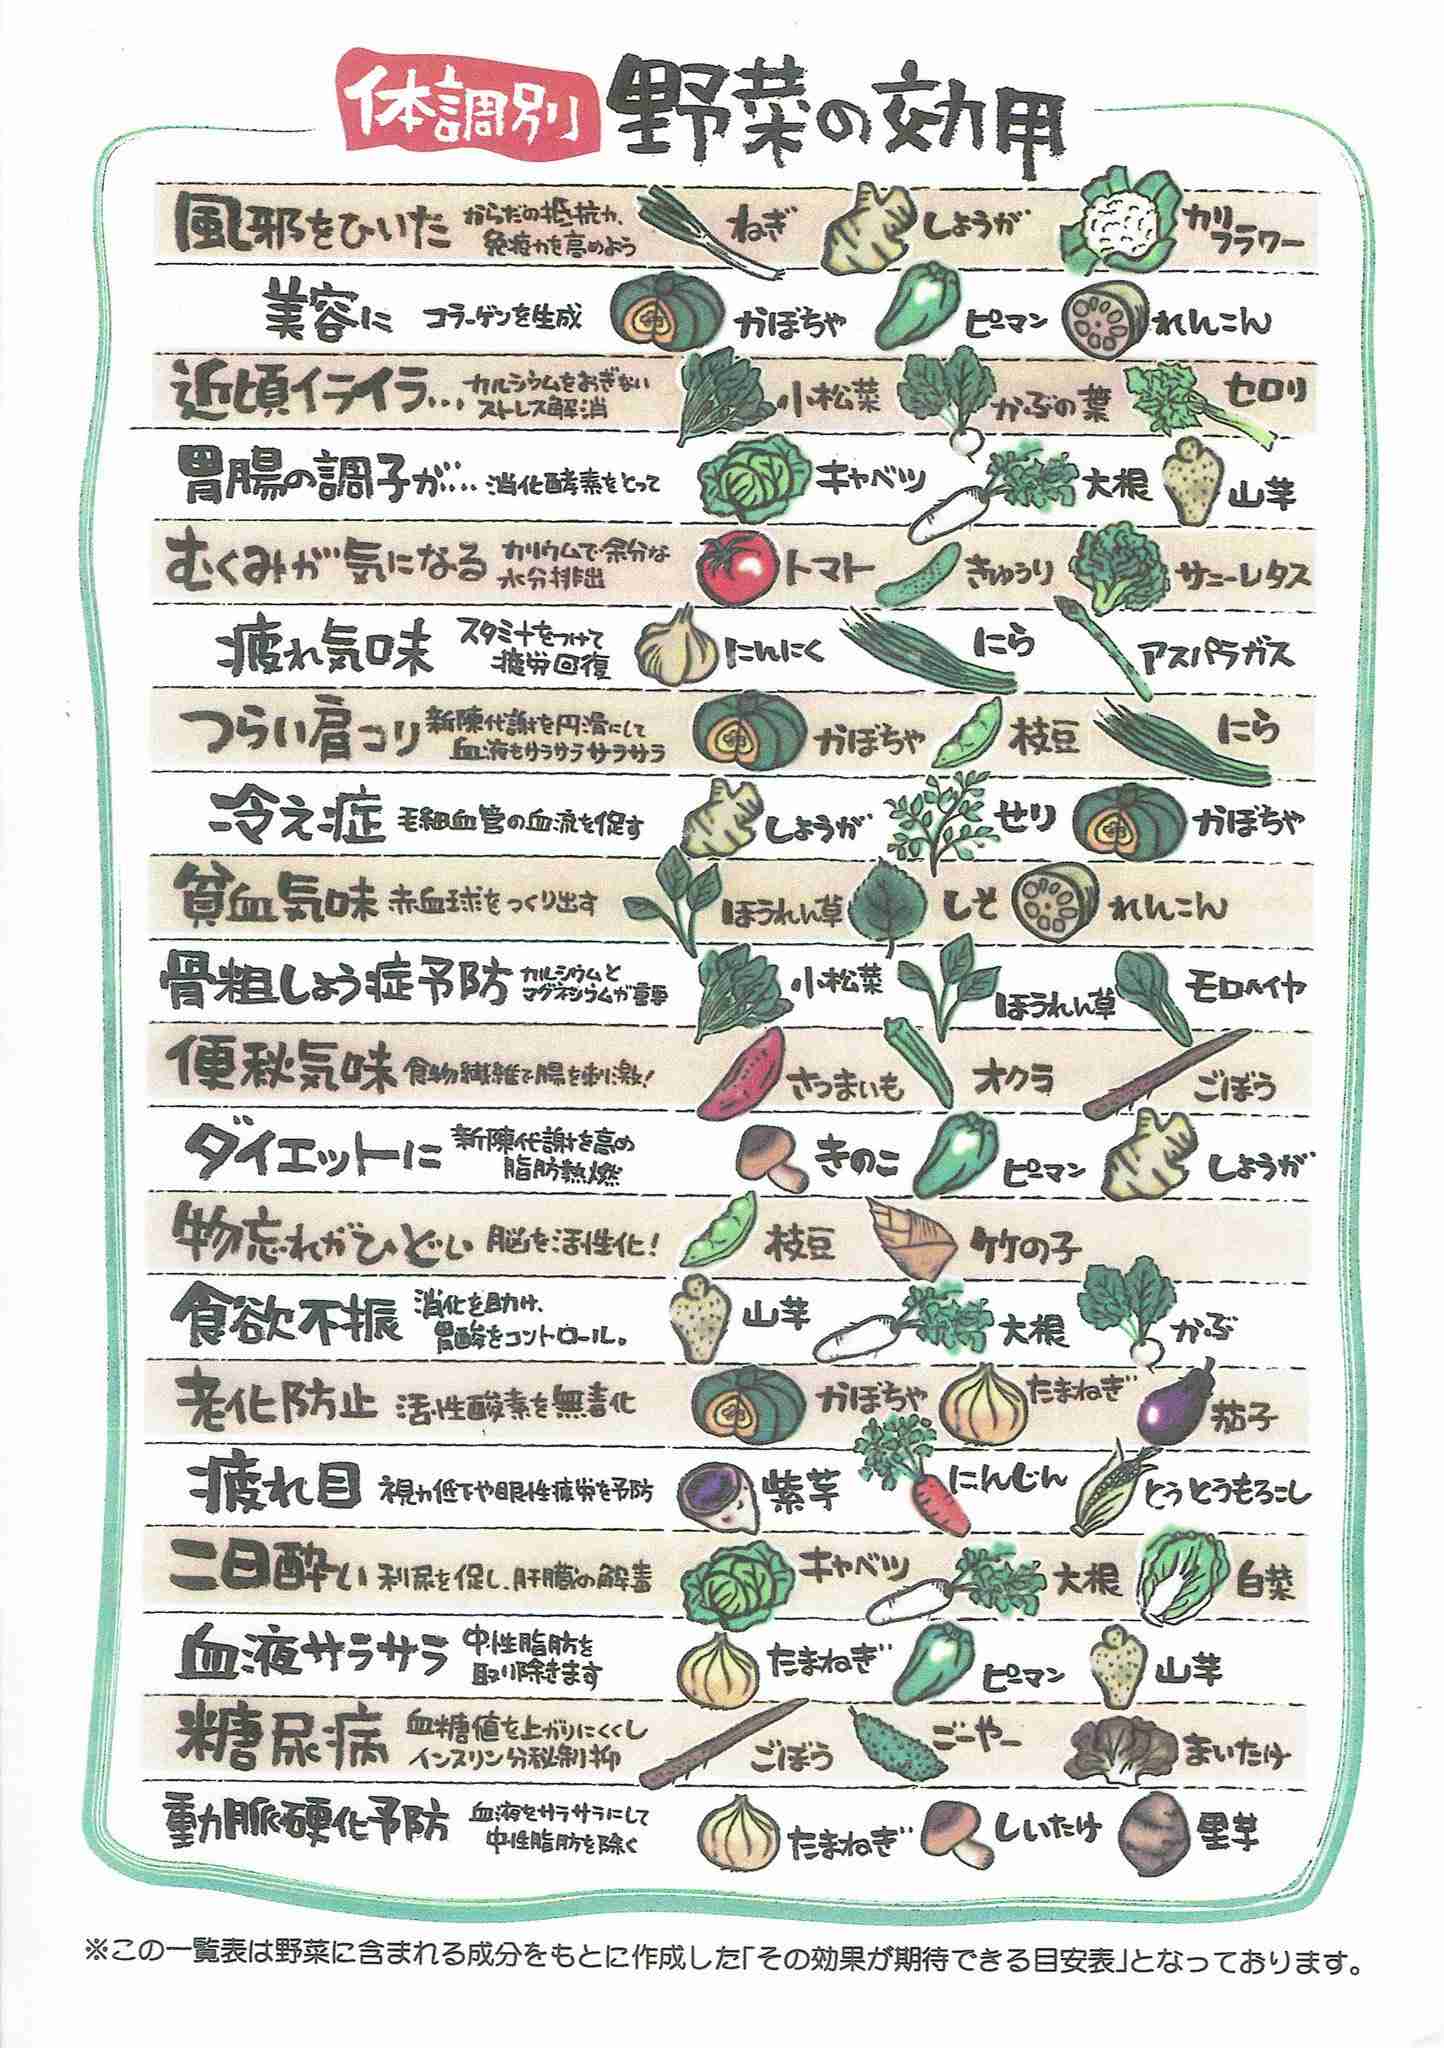 体調別 野菜の効用
風邪をひいた からだの抵抗力、免疫力を高めよう ねぎ しょうが カリフラワー
美容に コラーゲンを生成 かぼちゃ ピーマン れんこん
近頃イライラ… カルシウムをおぎないストレス解消 小松菜 かぶの葉 セロリ
胃腸の調子が…. 消化酵素をとって キャベツ 大根 山芋
むくみが気になる カリウムで余分な水分排出 トマト きゅうり サニーレタス
疲れ気味 スタミナをつけて疲労回復 にんにく にら アスパラガス
つらい肩コリ 新陳代謝を円滑にして血液をサラサラサラサラ かぼちゃ 枝豆 にら
冷え症 毛細血管の血流を促す しょうが せり かぼちゃ
貧血気味 赤血球をつくり出す ほうれん草 しそ れんこん
骨粗しょう症予防 カルシウムとマグネシウムが重要 小松菜 ほうれん草 モロヘイヤ
便秘気味 食物繊維で腸を刺激! さつまいも オクラ ごぼう
ダイエットに 新陳代謝を高め脂肪熱燃 きのこ ピーマン しょうが
物忘れがひどい 脳を活性化! 枝豆 竹の子
食欲不振 消化を助け、胃酸をコントロール。 山芋 大根 かぶ
老化防止 活性酸素を無毒化 かぼちゃ たまねぎ 茄子
疲れ目 視力低下や眼性疲労を予防 紫芋 にんじん とうとうもろこし
二日酔い 利尿を促し、肝臓の解毒 キャベツ 大根 白菜
血液サラサラ 中性脂肪を取り除きます たまねぎ ピーマン 山芋
糖尿病 血糖値を上がりにくくしインスリン分秘制抑 ごぼう ごーやー まいたけ
動脈硬化予防 血液をサラサラにして中性脂肪を除く たまねぎ しいたけ 里芋
※この一覧表は野菜に含まれる成分をもとに作成した「その効果が期待できる目安表」となっております。